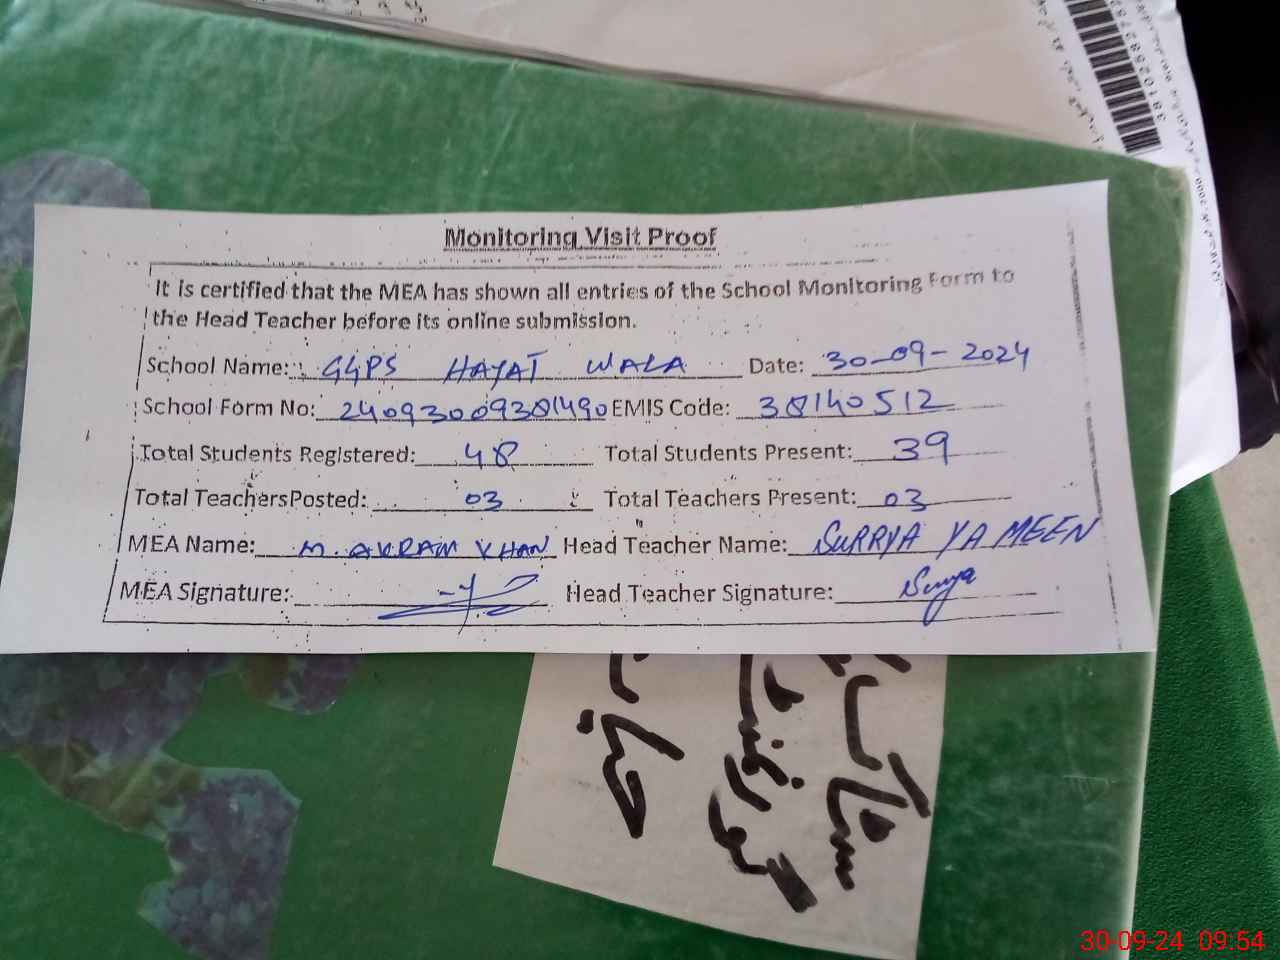 Monitoring Visit Proof
It is certified that the MEA has shown all entries of the School Monitoring Form to
the Head Teacher before its online submission.
School Name: GGPS HAYAT WALA Date: 30-09-2024
School Form No: 24093009381490 EMIS Code: 38140512
Total Students Registered: 48 Total Students Present: 39
Total TeachersPosted: 03 Total Teachers Present: 03
MEA Name: M. AKRAM KHAN Head Teacher Name: SURRYA YAMEEN
MEA Signature: Head Teacher Signature: Surya
سٹاک
گورنمنٹ
حیات
30-09-24 09:54